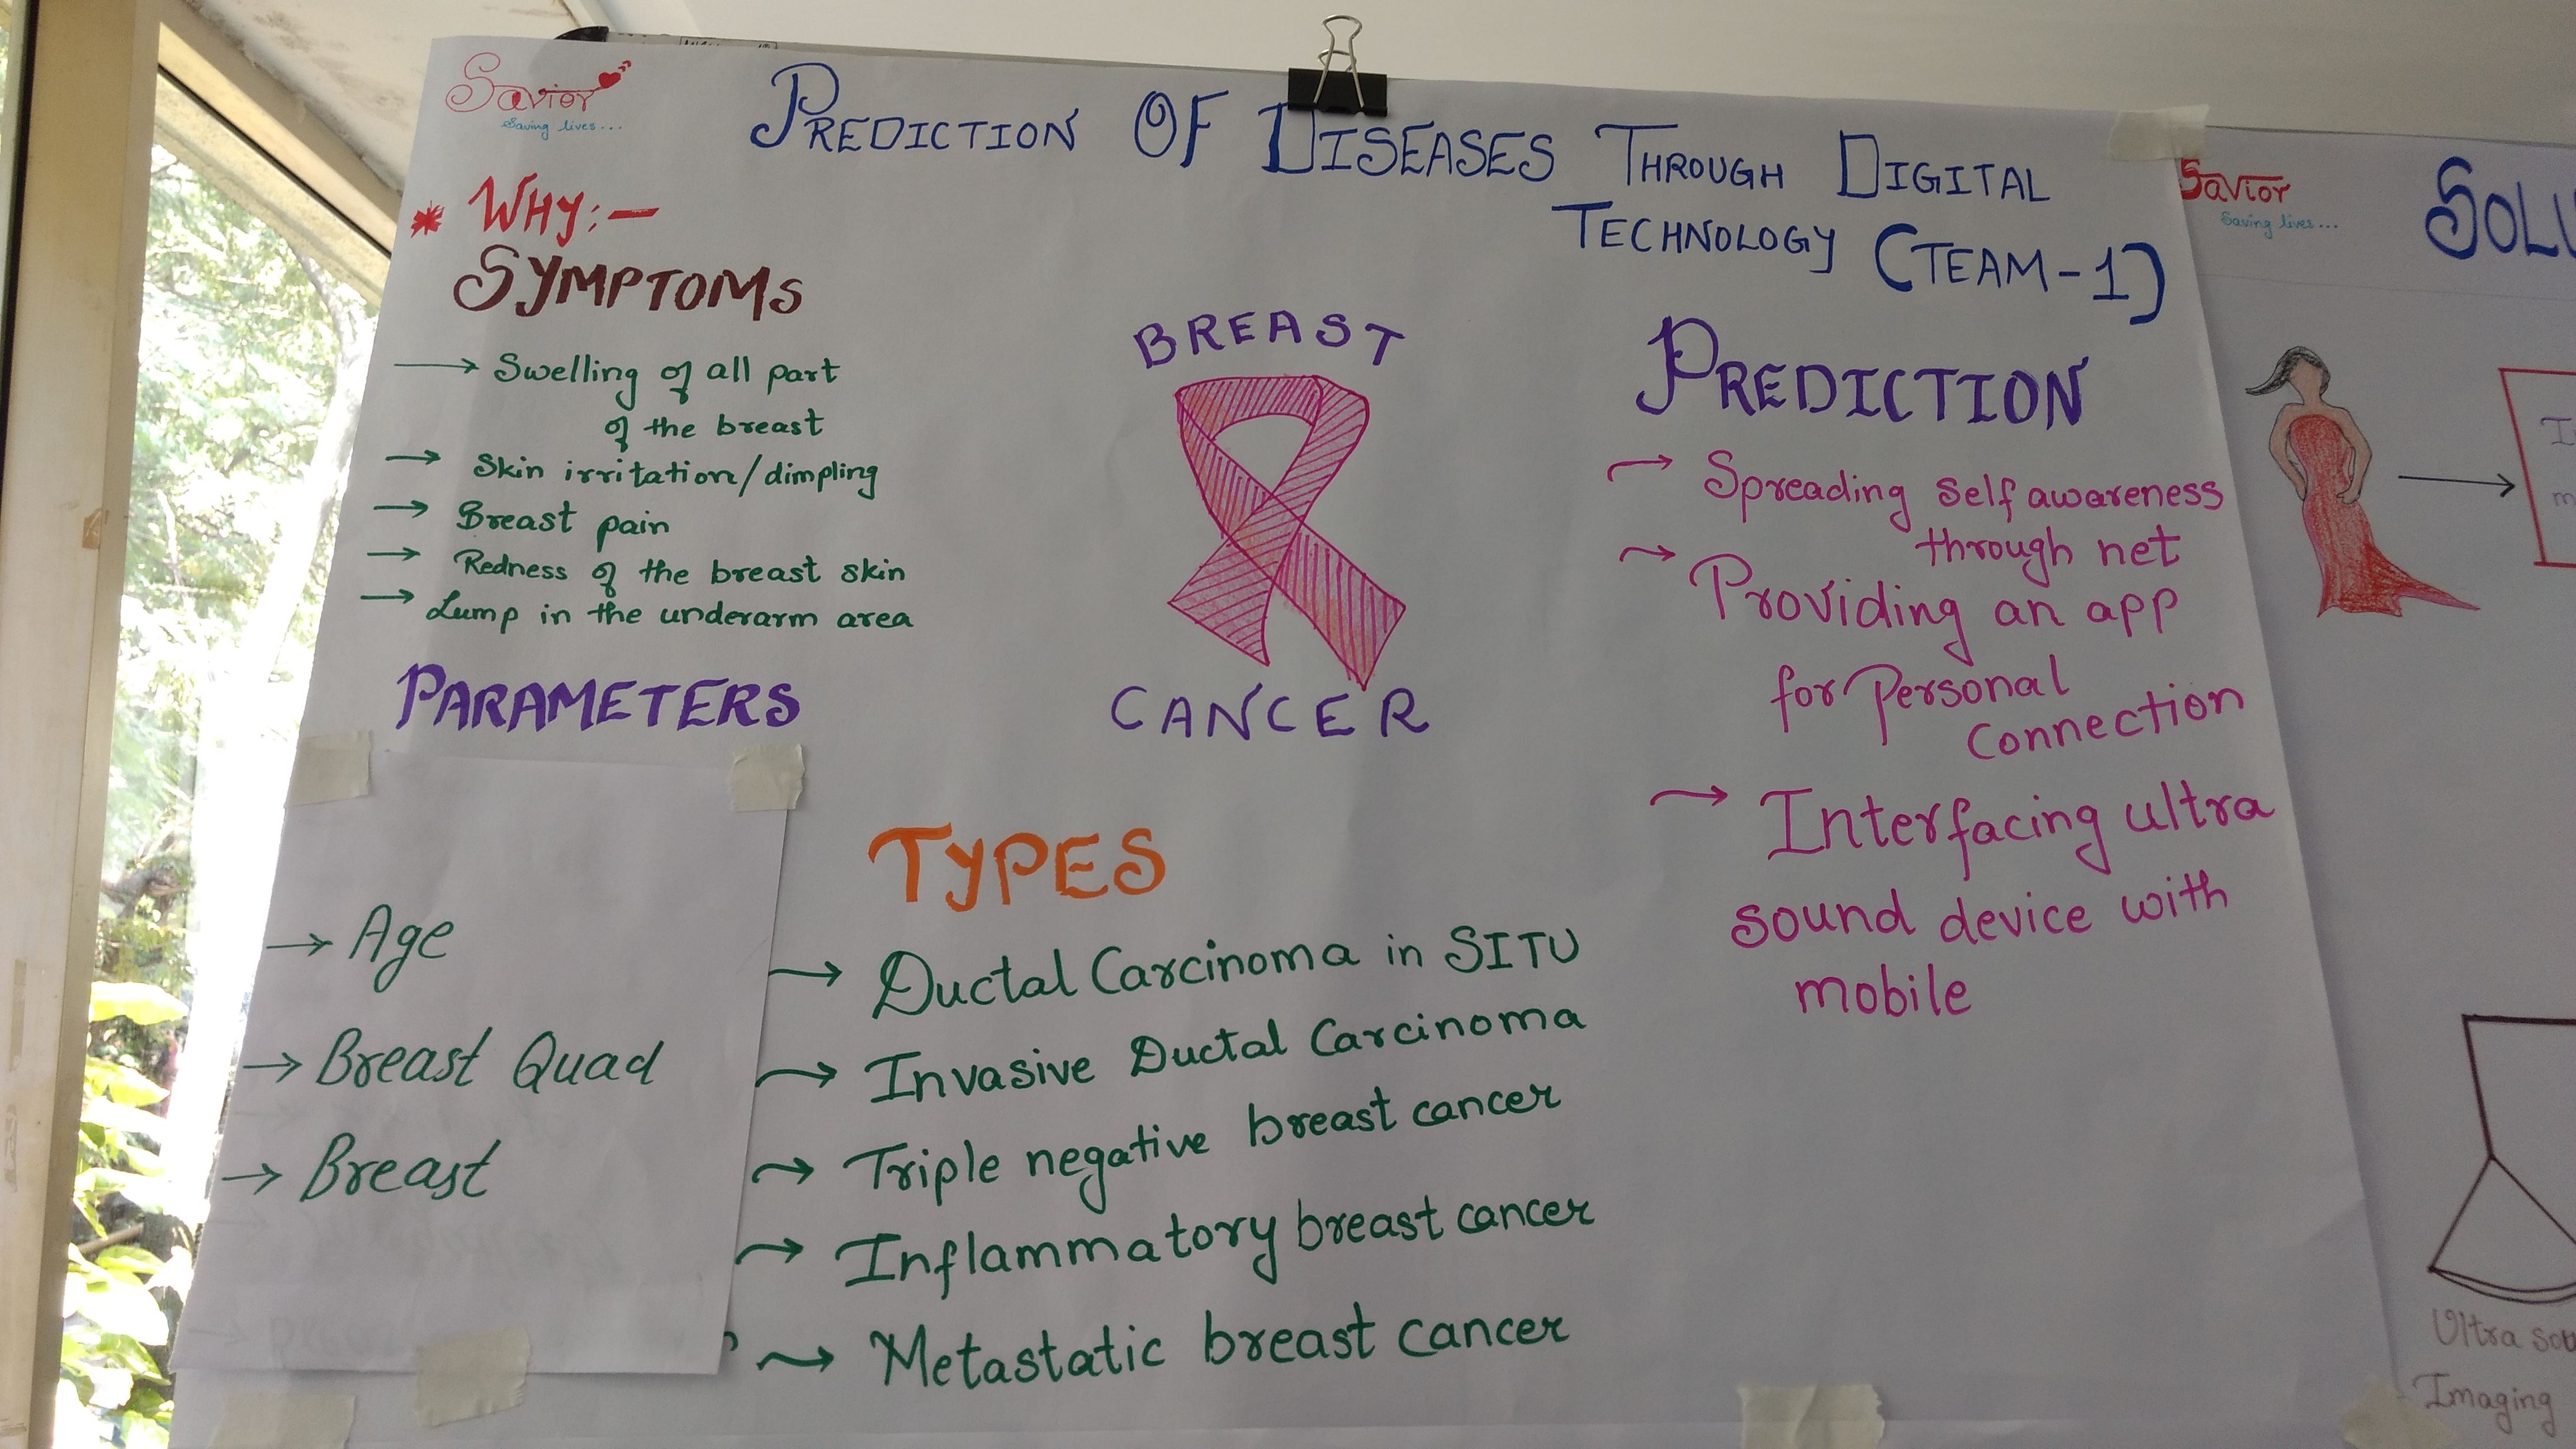 Savior
Saving lives...
PREDICTION OF DISEASES THROUGH DIGITAL
TECHNOLOGY (TEAM-1)
* WHY:-
SYMPTOMS
→ Swelling of all part
of the breast
→ Skin irritation/dimpling
→ Breast pain
→ Redness of the breast skin
→ Lump in the underarm area
PARAMETERS
→ Age
→ Breast Quad
→ Breast
BREAST
CANCER
TYPES
→ Ductal Carcinoma in SITU
→ Invasive Ductal Carcinoma
→ Triple negative breast cancer
→ Inflammatory breast cancer
→ Metastatic breast cancer
PREDICTION
→ Spreading Self awareness
through net
→ Providing an app
for Personal
Connection
→ Interfacing ultra
sound device with
mobile
Savior
Saving lives...
SOLU
Ultra sou
Imaging